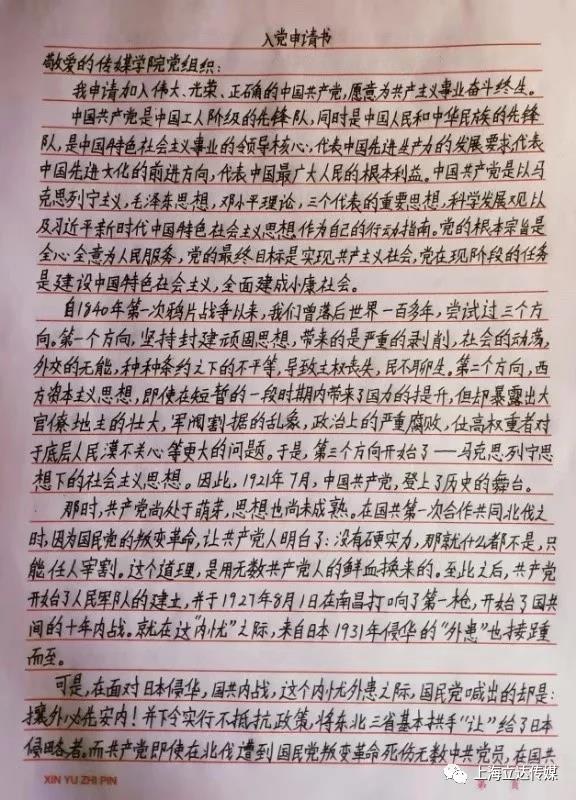 入党申请书
敬爱的传媒学院党组织：
我申请加入伟大、光荣、正确的中国共产党，愿意为共产主义事业奋斗终生。
中国共产党是中国工人阶级的先锋队，同时是中国人民和中华民族的先锋
队，是中国特色社会主义事业的领导核心，代表中国先进生产力的发展要求代表
中国先进文化的前进方向，代表中国最广大人民的根本利益。中国共产党是以马
克思列宁主义，毛泽东思想，邓小平理论，三个代表的重要思想，科学发展观以
及习近平新时代中国特色社会主义思想作为自己的行动指南。党的根本宗旨是
全心全意为人民服务，党的最终目标是实现共产主义社会，党在现阶段的任务
是建设中国特色社会主义，全面建成小康社会。
自1840年第一次鸦片战争以来，我们曾落后世界一百多年，尝试过三个方
向。第一个方向，坚持封建顽固思想，带来的是严重的剥削，社会的动荡，
外交的无能，种种条约之下的不平等，导致主权丧失，民不聊生。第二个方向，西
方资本主义思想，即使在短暂的一段时期内带来了国力的提升，但却暴露出大
官僚地主的壮大，军阀割据的乱象，政治上的严重腐败，位高权重者对
于底层人民漠不关心等更大的问题。于是，第三个方向开始了——马克思列宁思
想下的社会主义思想。因此，1921年7月，中国共产党，登上了历史的舞台。
那时，共产党尚处于萌芽，思想也尚未成熟。在国共第一次合作共同北伐之
时，因为国民党的叛变革命，让共产党人明白了：没有硬实力，那就什么都不是，只
能任人宰割。这个道理，是用无数共产党人的鲜血换来的。至此之后，共产党
开始了人民军队的建立，并于1927年8月1日在南昌打响了第一枪，开始了国共
间的十年内战。就在这“内忧”之际，来自日本1931年侵华的“外患”也接踵
而至。
可是，在面对日本侵华，国共内战，这个内忧外患之际，国民党喊出的却是：
攘外必先安内！并下令实行不抵抗政策，将东北三省基本拱手“让”给了日本
侵略者。而共产党即使在北伐遭到国民党叛变革命死伤无数中共党员，在国共
XIN YU ZHI PIN
第 页
上海立达传媒